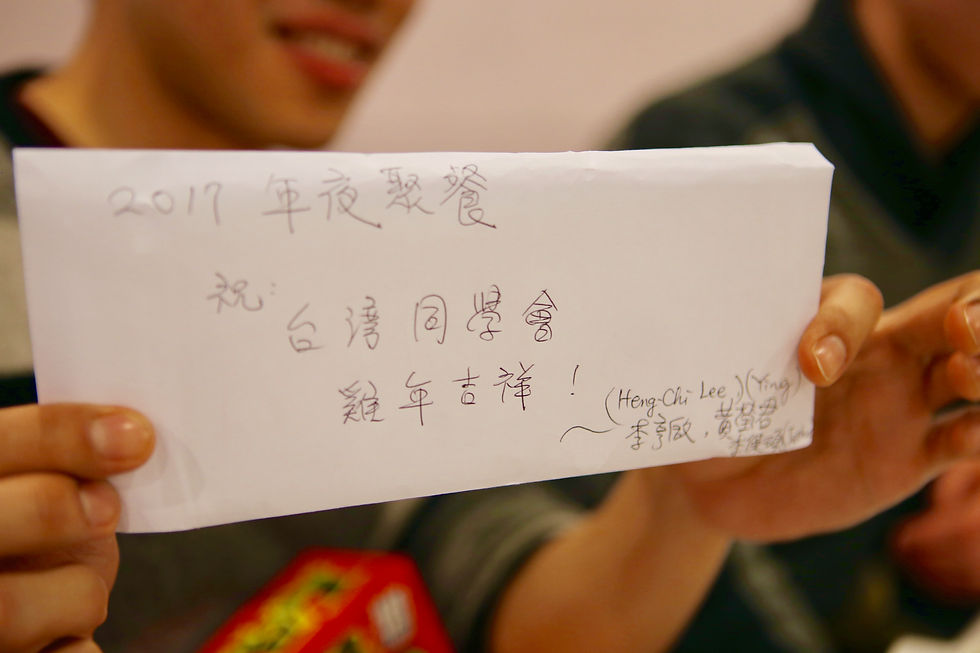 2017 年夜聚餐
祝:
台湾同學會
雞年吉祥!
(Heng-Chi Lee) (Ying)
~ 李亨啟, 黃瑩君